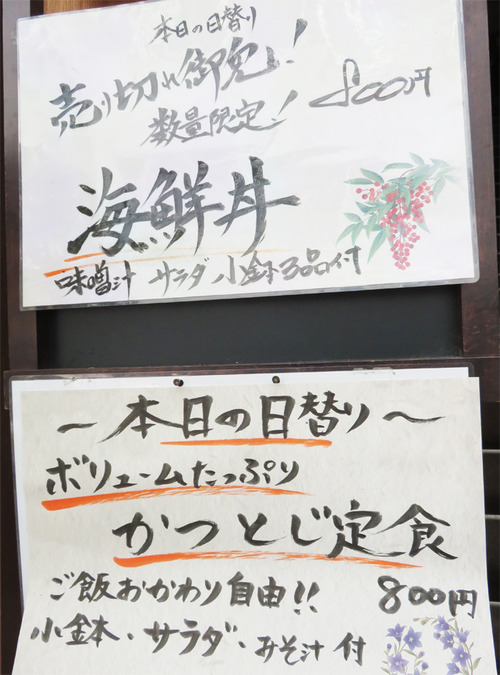 本日の日替り
売り切れ御免!
数量限定! 800円
海鮮丼
味噌汁 サラダ 小鉢 3品付
~本日の日替り~
ボリュームたっぷり
かつとじ定食
ご飯おかわり自由!!
800円
小鉢・サラダ・みそ汁 付